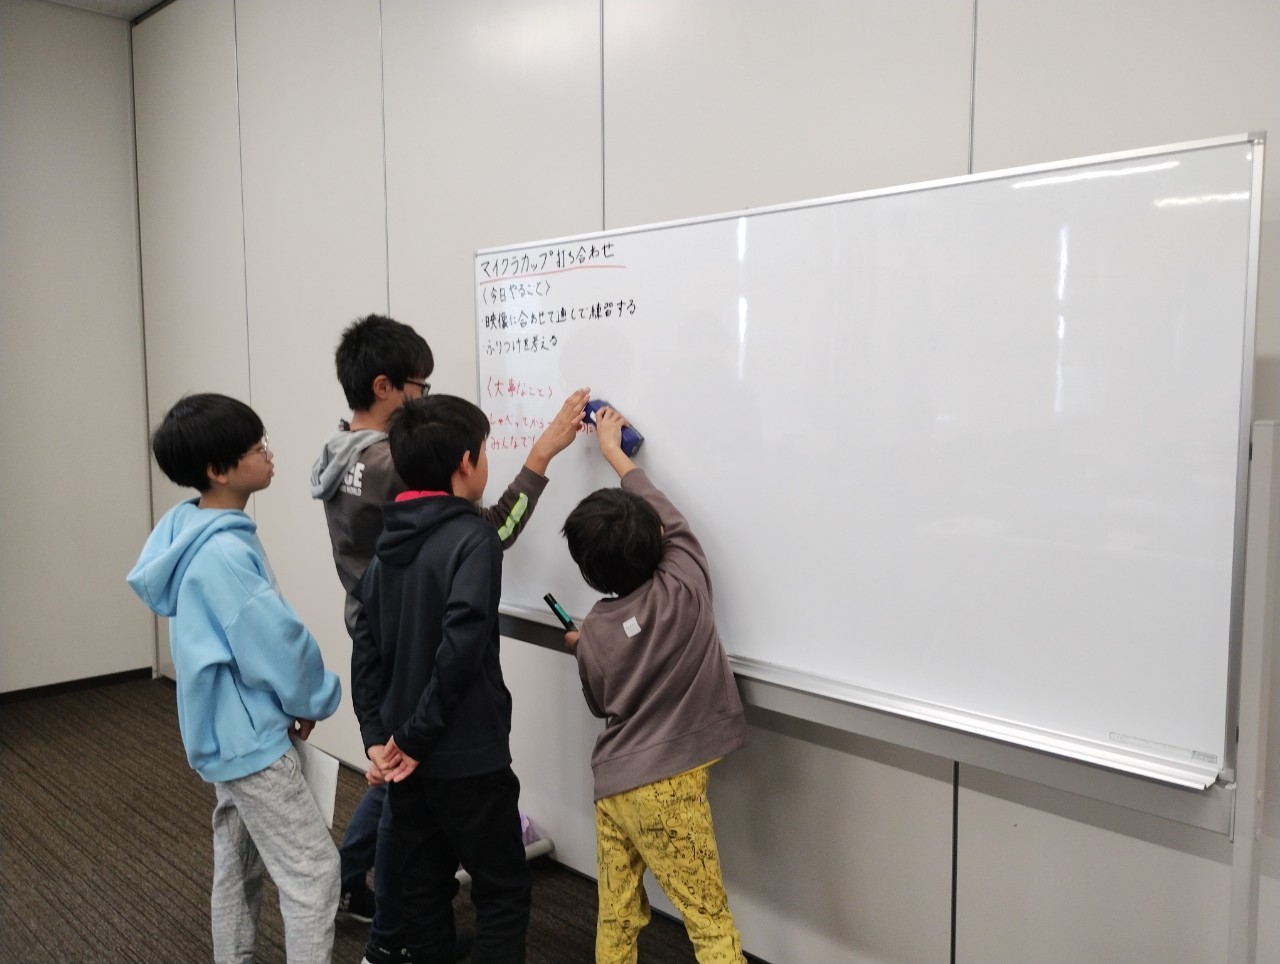 マイクラカップ打ち合わせ
〈今日やること〉
・映像に合わせて通しで練習する
・ふりつけを考える
〈大事なこと〉
しゃべってから
みんなで